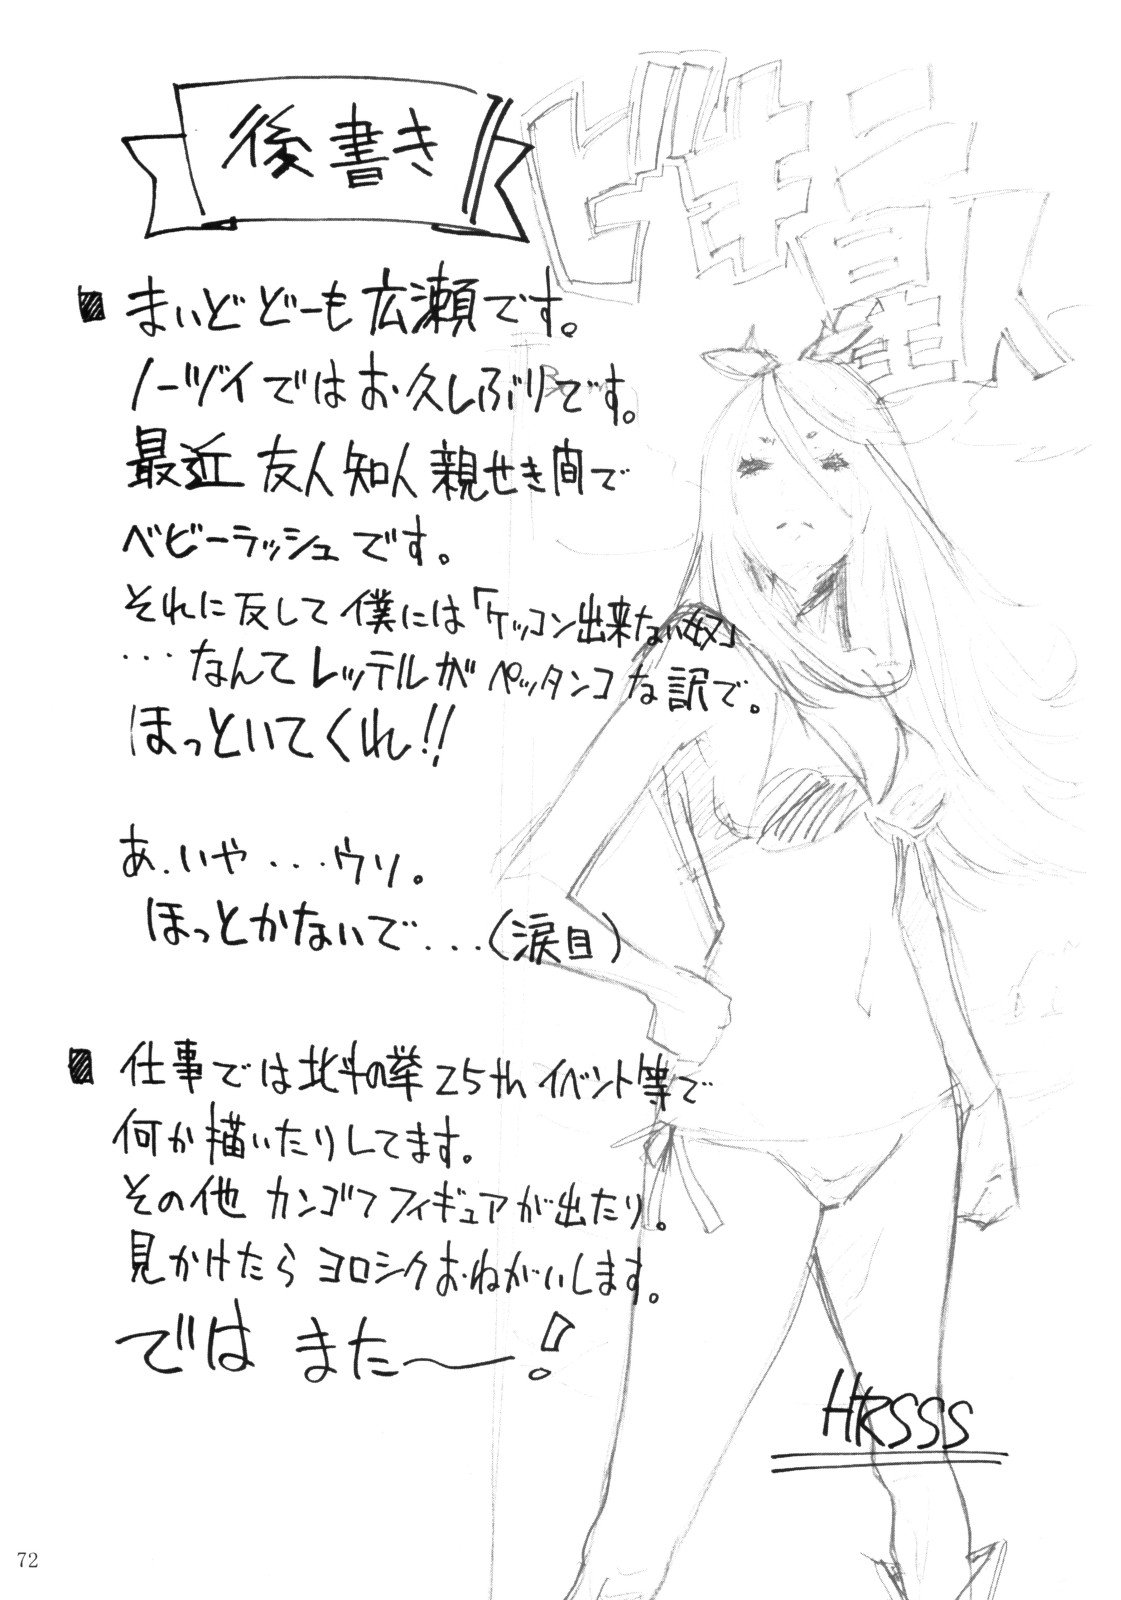 後書き
■ まいどどーも広瀬です。
ノーヅイではお久しぶりです。
最近 友人知人親せき間で
ベビーラッシュです。
それに反して僕には「ケッコン出来ない奴」
・・・なんてレッテルがペッタンコな訳で。
ほっといてくれ!!
あ、いや・・・ウソ。
ほっとかないで・・・(涙目)
■ 仕事では北斗の拳25thイベント等で
何か描いたりしてます。
その他 カンゴクフィギュアが出たり。
見かけたらヨロシクおねがいします。
では また〜!
HRSSS
72